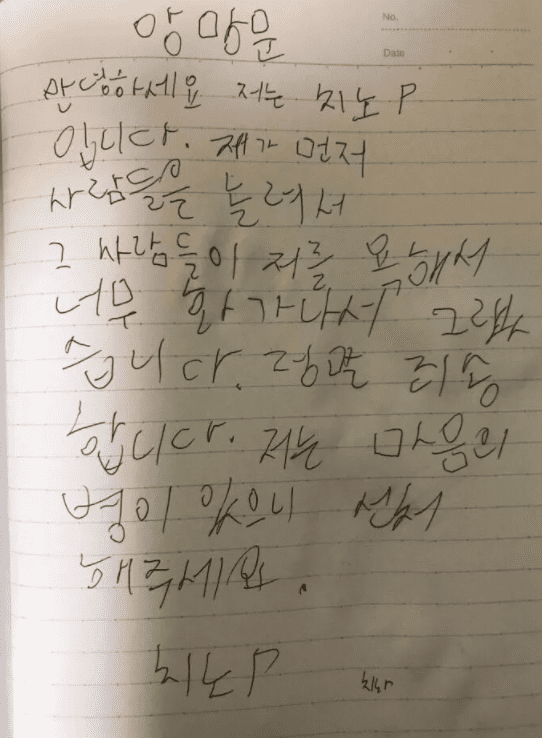 앙망문
No.
Date
안녕하세요 저는 치노P
입니다. 제가 먼저
사람들을 놀려서
그 사람들이 저를 욕해서
너무 화가나서 그랬
습니다. 정말 죄송
합니다. 저는 마음의
병이 있으니 선처
해주세요.
치노P